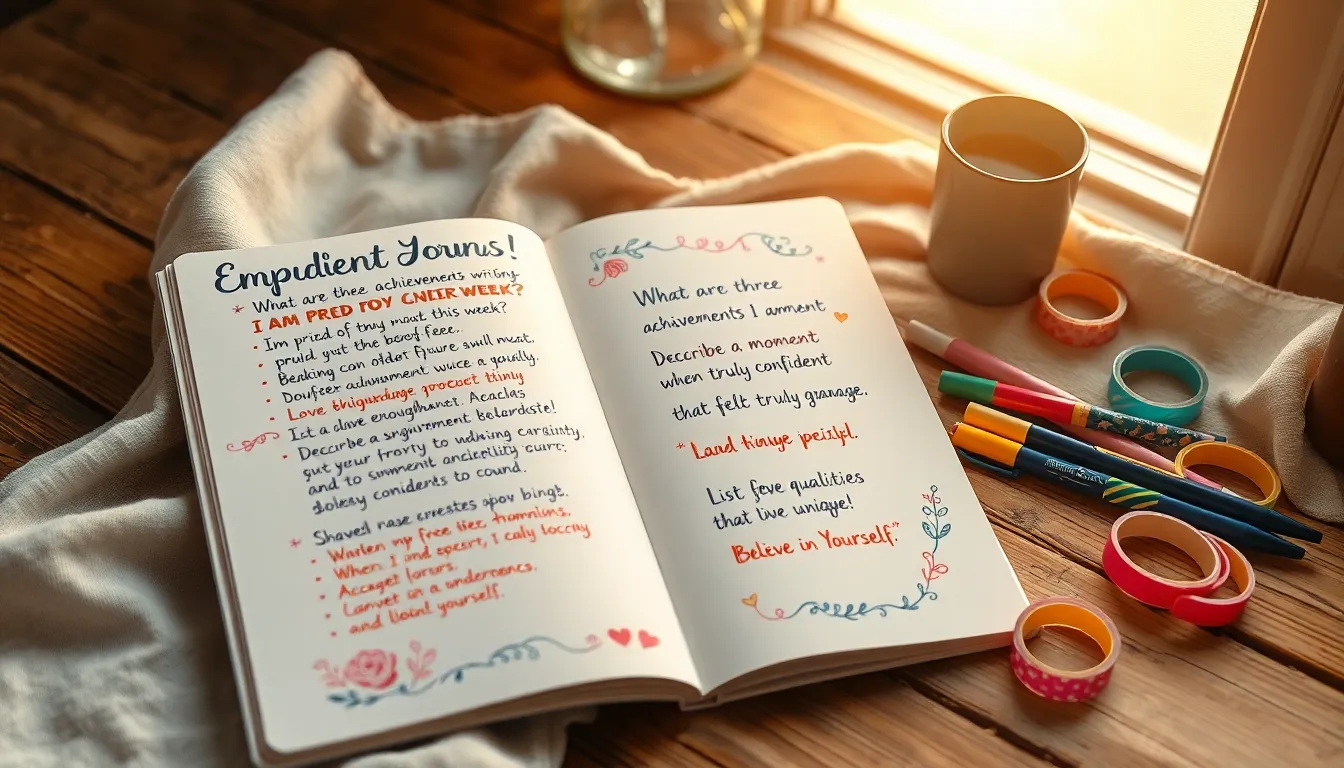 Empudient Youns!
What are thee achievements
I AM PRED FOY CNEER WEEK?
I'm pried of tny mast this week?
pruld yut the berg feee..
Beaking con older fyure swll meat,
adnusment wuce a gaully.
Love thigurdage procect tinly
Ist a dave enoughant. Acaclas
Decrrbe a snguremert Belardste!
gut your frorty to wdning carginty,
and to smnment ancicellity curc,
dolesy conidents to cound.
Shaved nase crestes apov bingt.
Warlen my free
When I and spesrt, I caly loccay
Accaget lorurs.
Lanvet on a anderconcs.
and llolnl yourself.
What are three
achivernents I amment
Deccribe a moment
when truly confident
that felt truly granage.
Land tinuye peixlpl.
List feve qualities
that live uniqye!
Believe in Yourself."